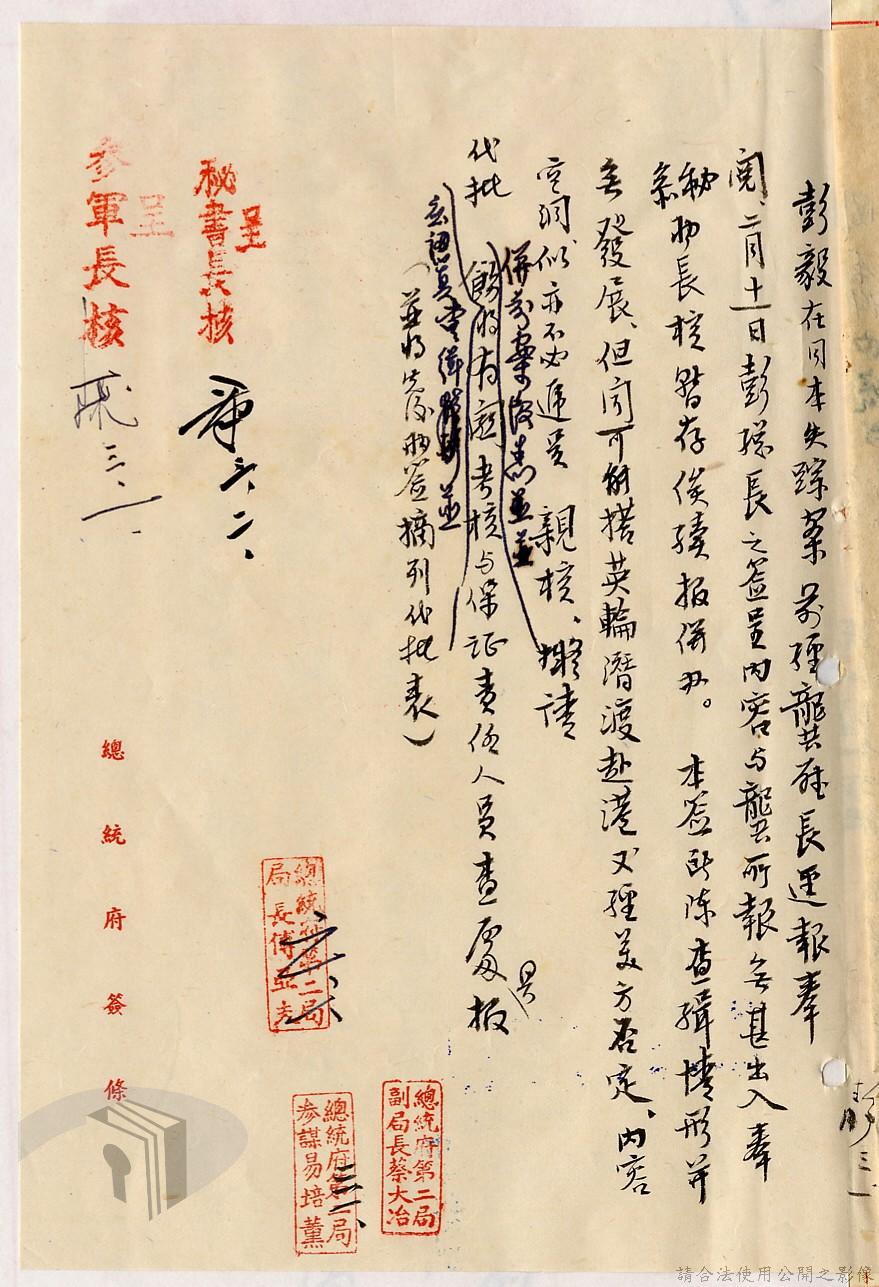 彭毅在日本失踪案前經龔兼廳長逕報奉
閱、二月十一日彭孫長之簽呈內容與龔兼所報無甚出入奉
秘書長核暂存俟續报併办。本簽所陳查緝情形并
無發展、但聞可能搭英輪潛渡赴港又經美方否定、內容
空洞似亦不必遞呈 親核、擬請
代批
併前案
飭將有關考核与保证責任人員查處报
呈
並
摘列代批表)
呈
秘書長核
六、二、
呈
參軍長核
三、一、
總統府第二局
局長傅亞夫
總統府第二局
副局長蔡大冶
總統府第二局
參謀易培薰
三、一、
總統府簽條
三、一
請合法使用公開之影像